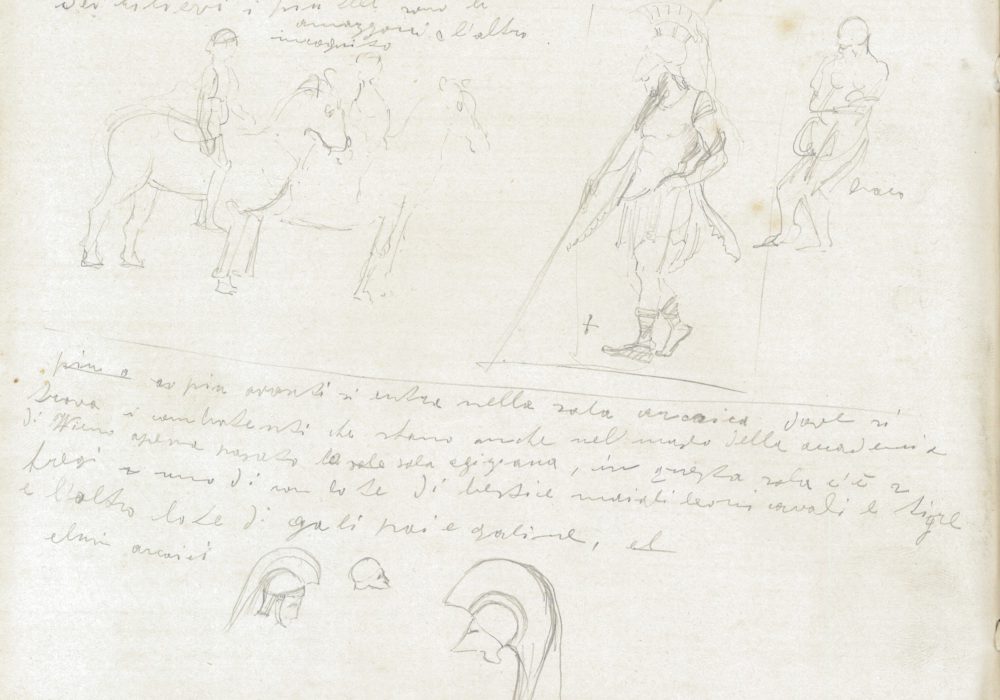 dei rilievi i più
amazzoni, l'altro
incognito
più avanti si entra nella sala arcaica dove si
trova i combatenti che stano anche nel museo della academia
di apena pasato la sala egiziana, in questa sala c'è 2
fregi uno di con lote di bestie maiali leoni cavali e tigre
e l'altro lote di gali poi e galine, el
elmi arcaici